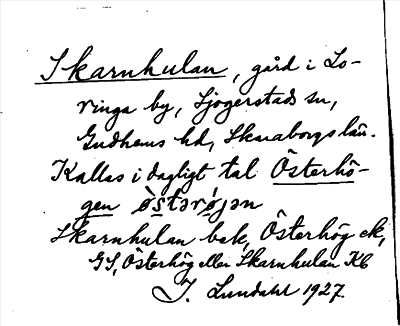 Skarnhulan, gård i Lo-
ringa by, Sjogerstads sn,
Gudhems hd, Skaraborgs län.
Kallas i dagligt tal Österhö-
gen òstərø̀jən
Skarnhulan bek, Österhög ek,
GS, Österhög eller Skarnhulan Kb
J. Lundahl 1927.